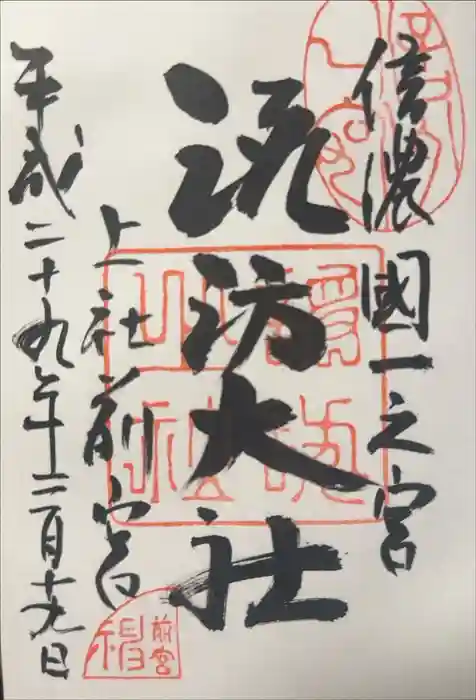 信濃國一之宮
諏訪大社
上社前宮
平成二十九年二月十九日
前宮